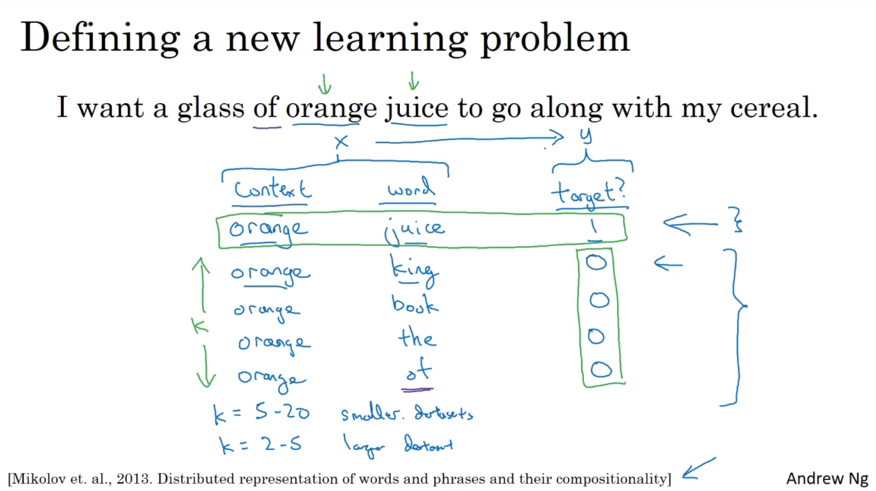 Defining a new learning problem
I want a glass of orange juice to go along with my cereal.
x y
context word target?
orange juice 1
orange king 0
orange book 0
k
orange the 0
orange of 0
k = 5-20 smaller datasets
k = 2-5 larger
[Mikolov et. al., 2013. Distributed representation of words and phrases and their compositionality]
Andrew Ng